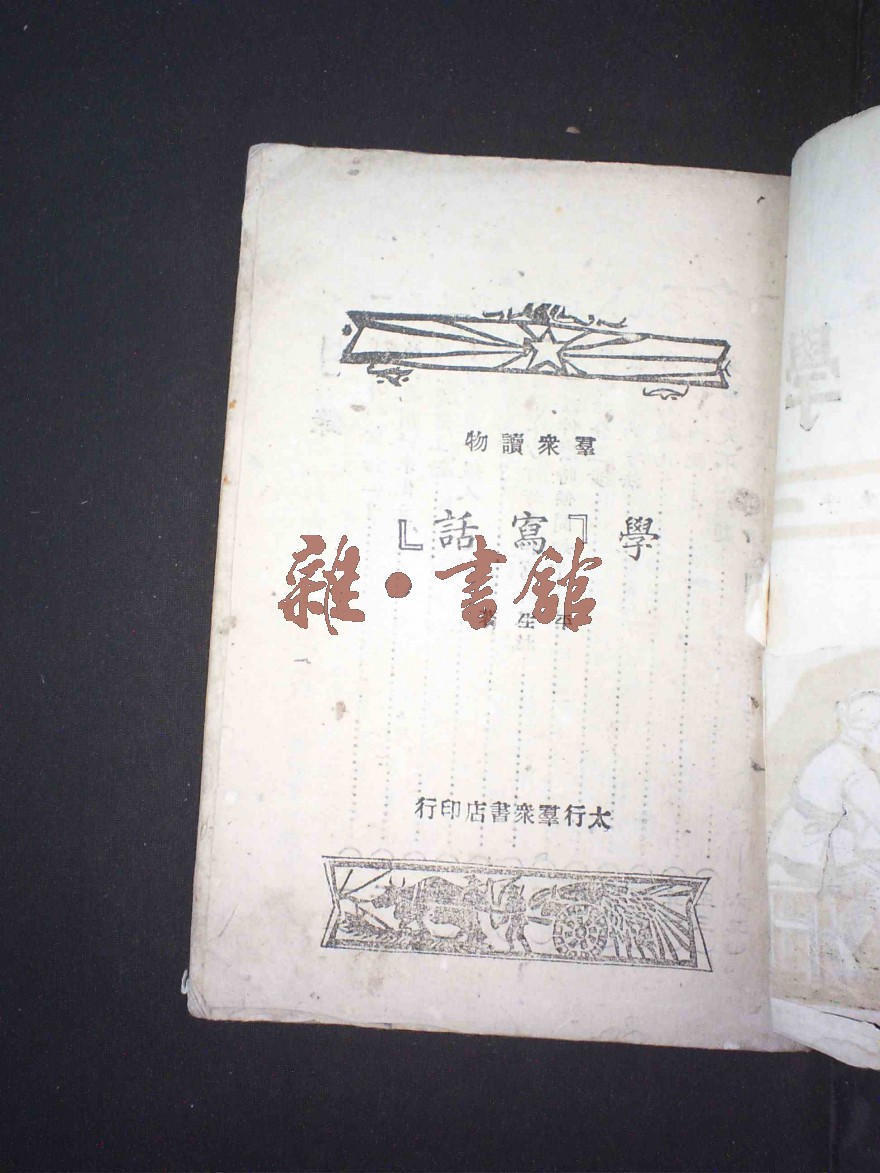 羣眾讀物
學『寫話』
雜·書館
平生著
太行羣眾書店印行
學